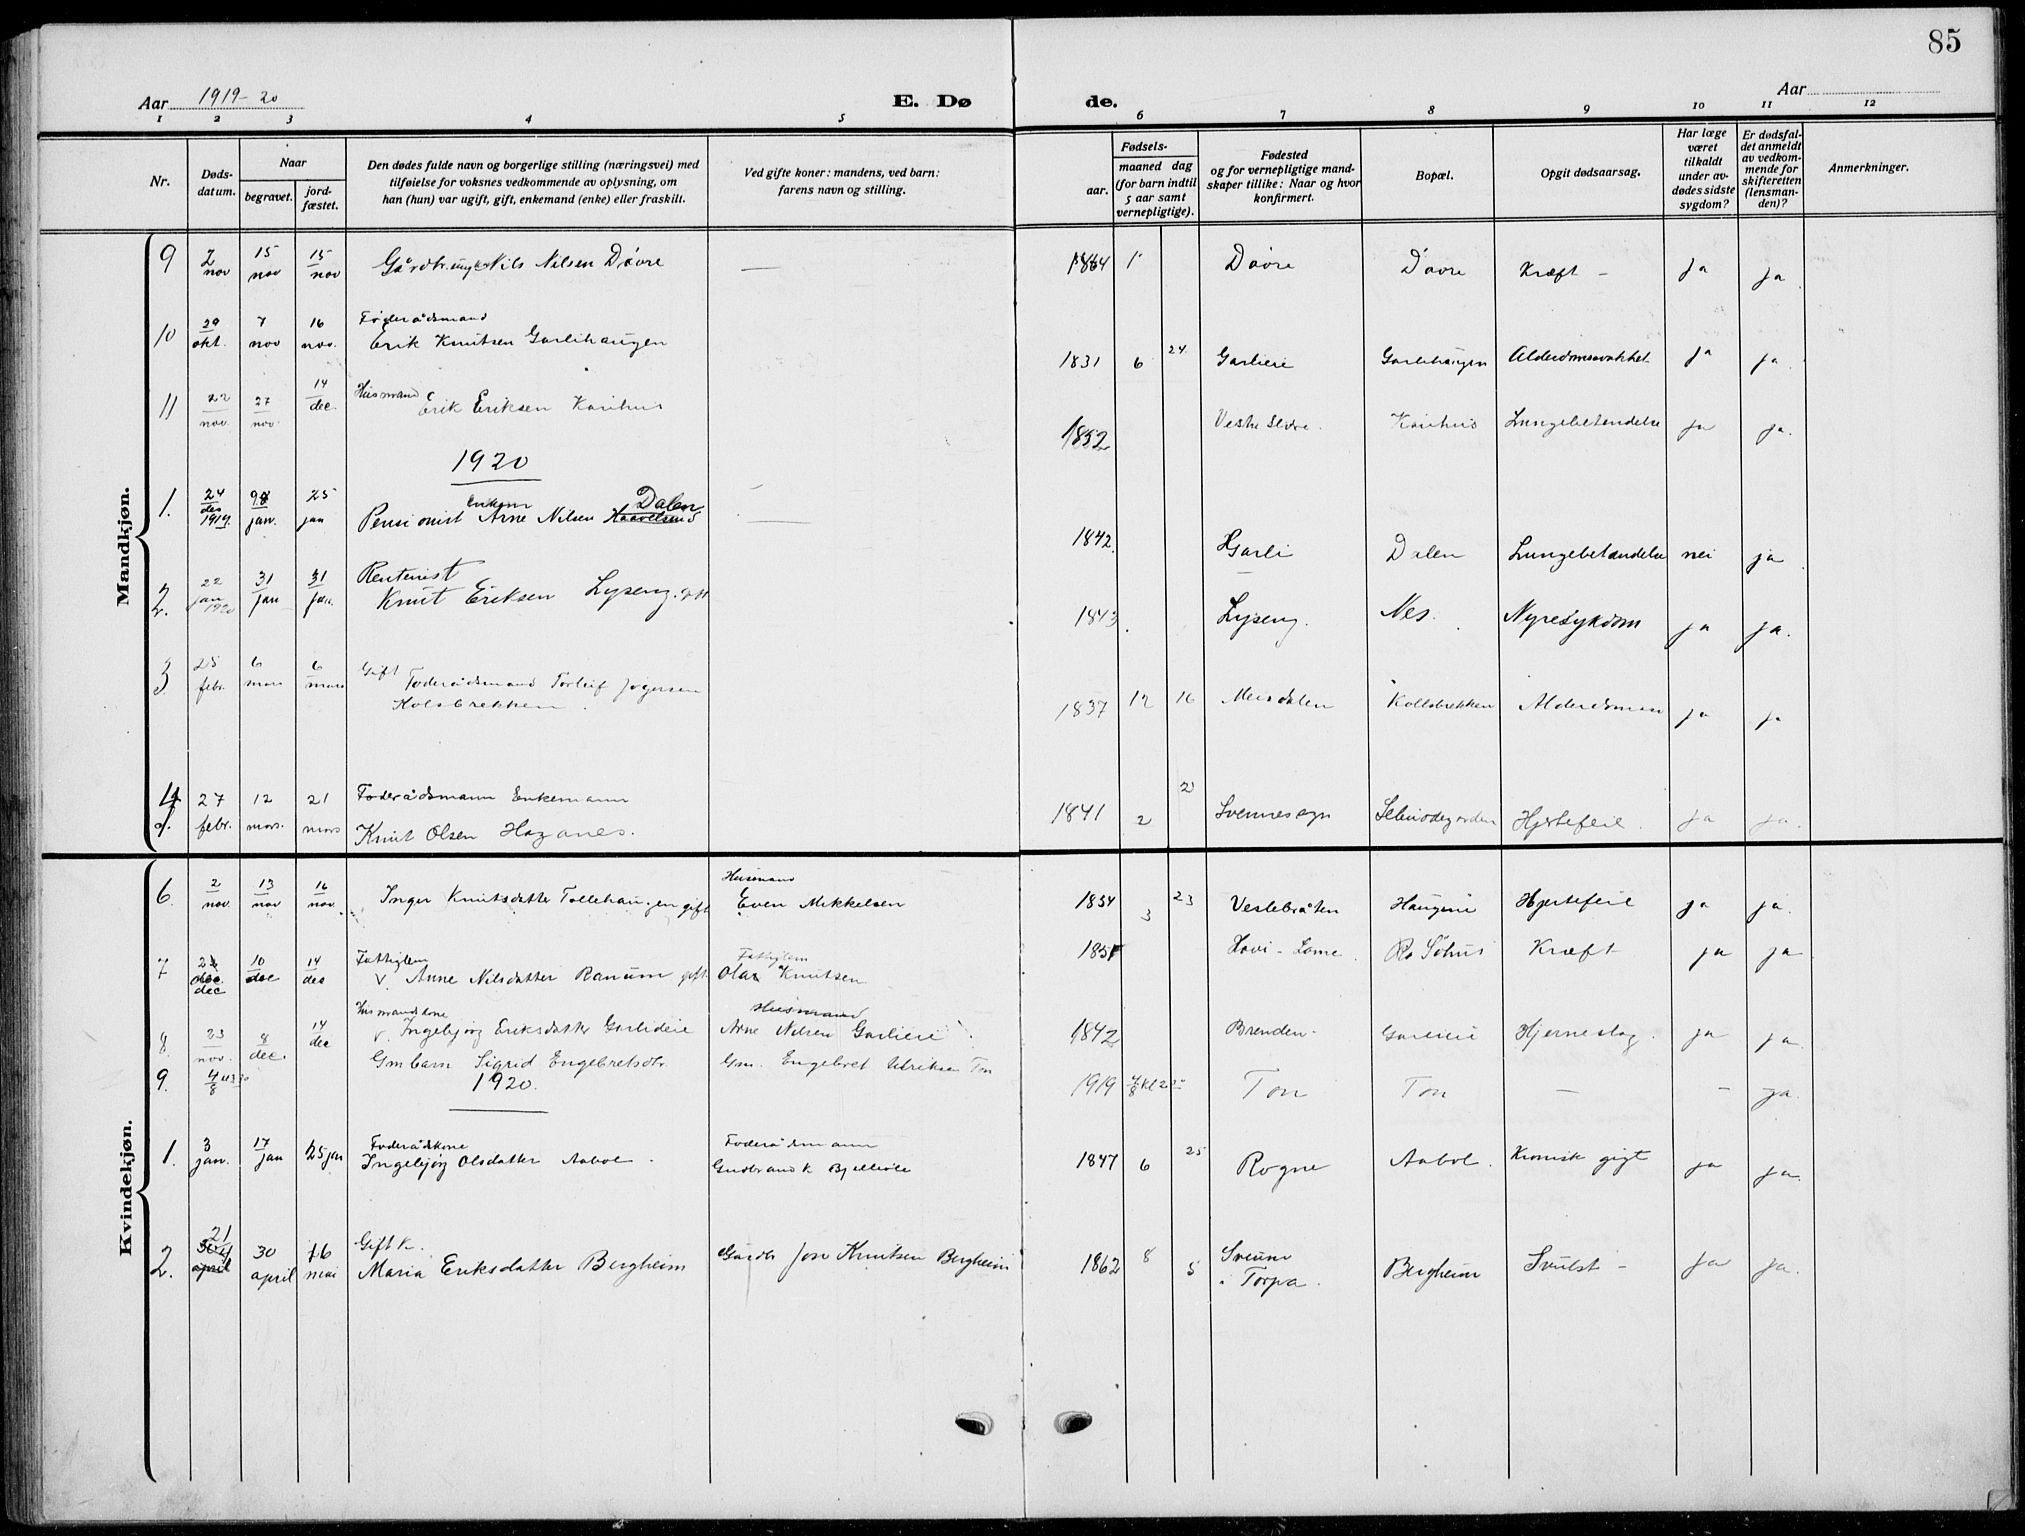 85
Aar 1919-20
E. Dø
de.
Aar
1 2 3 4 5 6 7 8 9 10 11 12
Nr.
Døds-
datum.
Naar
begravet.
jord-
fæstet.
Den dødes fulde navn og borgerlige stilling (næringsvei) med
tilføielse for voksnes vedkommende av oplysning, om
han (hun) var ugift, gift, enkemand (enke) eller fraskilt.
Ved gifte koner: mandens, ved barn:
farens navn og stilling.
Fødsels-
aar.
maaned dag
(for barn indtil
5 aar samt
vernepligtige).
Fødested
og for vernepligtige mand-
skaper tillike: Naar og hvor
konfirmert.
Bopæl.
Opgit dødsaarsag.
Har læge
været
tilkaldt
under av-
dødes sidste
sygdom?
Er dødsfal-
det anmeldt
av vedkom-
mende for
skifteretten
(lensman-
den)?
Anmerkninger.
Mandkjøn.
9 2 nov 15 nov 15 nov Gårdbr. Nils Nilsen Døvre — 1864 1 Døvre Døvre Kræft – ja ja
10 29 okt. 7 nov 16 nov. Føderådsmand
Erik Knutsen Garlihaugen 1831 6 24 Garlieie Garlihaugen ja ja.
11 22 nov 27 nov 14 dec. Husmand
Erik Eriksen Karihus 1852 Vestre Slidre. Karihus Lungebetændelse ja ja.
1920
1. 24 des 1919. jan. 25 jan Enkem
Pensionist Arne Nilsen Dalen — 1842. Garli Dalen Lungebetændelse nei ja
2. 22 jan 1920 31 jan 31 jan. Rentenist
Knut Eriksen Lyseng. gift 1843. Lyseng. Nes. Nyresykdom ja ja.
3 25 febr. 6 mars 6 mars Gift
Føderådsmand Torleif Jogersen
Kolsbrekken. 1837 12 16 Meisdalen Kollsbrekken ja ja
4. 27 febr. 12 mars. 21 mars Føderådsmann Enkemann
Knut Olsen Haganes. 1841 2 2 Svennes sogn Hjertefeil. ja ja.
Kvindekjøn.
6. 2 nov 13 nov 16 nov. Inger Knutsdatter Tollehaugen gift Husmand
Even Mikkelsen 1854 3 23 Veslebråten Haugene Hjertefeil ja ja.
7 dec 10 dec 14 des Fattiglem
v. Anne Nilsdatter Ranum gift Fattiglem
Olav Knutsen 1851 Hovi – Lome. Kræft ja ja
8. 23 nov. 8 dec. 14 dec Husmandskone
v. Ingebjørg Eriksdatter Garlideie Husmand
Arne Nilsen Garlieie. 1842 Brenden – Garlieie Hjerneslag. ja ja.
9. 4/8 Gmbarn Sigrid Engebretsdtr. Gm. Engebret Ulriksen Ton 1919 Ton Ton — – ja.
1920.
1. 3 jan. 17 jan 25 jan Føderådskone
Ingebjørg Olsdatter Aabol. Føderådsmann
Gudbrand K. 1847 6 25 Rogne Aabol. Kronisk gigt ja ja.
2. 21 april 30 april 16 mai Gift K.
Maria Eriksdatter Bergheim Gårdbr Jon Knutsen Bergheim 1862 8 5 Sveum
i Torpa. Bergheim Svulst – ja ja.